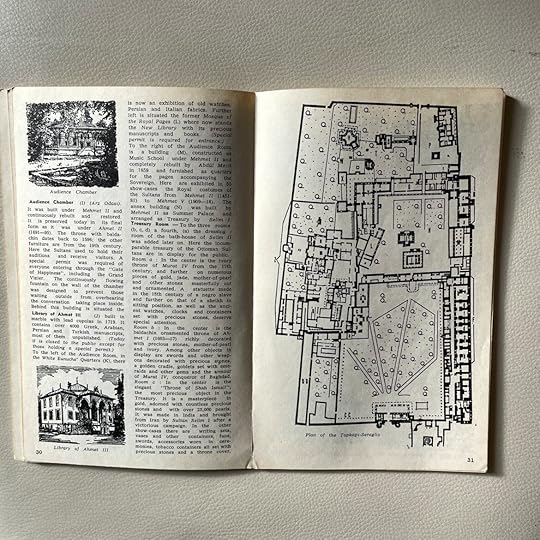 Audience Chamber
Audience Chamber (I) (Arz Odası).
It was built under Mehmet II and
continuously rebuild and restored.
It is preserved today in its final
form as it was under Ahmet II
The throne with balda-
chin dates back to 1596; the other
furniture are from the 19th century.
Here the Sultans used to hold their
auditions and receive visitors. A
special permit was required of
everyone entering through the "Gate
of Happiness", including the Grand
Vizier. The continuously flowing
fountain on the wall of the chamber
was designed to prevent those
waiting outside from overhearing
the conversation taking place inside.
Behind this building is situated the
Library of Ahmet III (J) built in
marble with lead cupolas in 1719. It
contains over 4000 Greek, Arabian,
Persian and Turkish manuscripts,
most of them unpublished. (Today
it is closed to the public except for
those holding a special permit.)
To the left of the Audience Room, in
the White Eunuchs' Quarters (K), there
Library of Ahmet III
30
is now an exhibition of old watches,
Persian and Italian fabrics. Further
left is situated the former Mosque of
the Royal Pages (L) where now stands
the New Library with its precious
manuscripts and books. (Special
permit is required for entrance.)
To the right of the Audience Room
is a building (M), constructed as
Music School under Mehmet II and
completely rebuilt by Abdül Mecit
in 1859 and furnished as quarters
for the pages accompanying the
Sovereign. Here are exhibited in 30
show-cases the Royal costumes of
the Sultans from Mehmet II
to Mehmet V (1909—18). The
annex building (N) was built by
Mehmet II as Summer Palace and
arranged as Treasury by Selim I.
Treasury Room — To the three rooms
(b, c, d) a fourth, (a) the dressing
room of the bath-house of Selim II
was added later on. Here the incom-
parable treasury of the Ottoman Sul-
tans are in display for the public.
Room a : In the center is the ivory
throne of Murat IV from the 17th
century; and further on numerous
pieces of gold, jade, mother-of-pearl
and other stones masterfully cut
and ornamented. A statuette made
in the 15th century of a negro slave
and farther on that of a sultan in
sitting position, as well as the anci-
ent watches, clocks and containers
set with precious stones deserve
special attention.
Room b : In the center is the
baldachin ornamented throne of Ah-
met I (1603—17) richly decorated
with precious stones, mother-of-pearl
and ivory. Among other objects in
display are swords and other weap-
ons decorated with precious stones,
a golden cradle, goblets set with eme-
ralds and other gems and the armour
of Murat IV, conqueror of Baghdad.
Room c : In the center is the
elegant "Throne of Shah Ismail",
the most precious object in the
Treasury. It is a masterpiece in
gold, adorned with countless precious
stones and with over 25,000 pearls.
It was made in India and brought
from Iran by Sultan Selim I after a
victorious campaign. In the other
show-cases there are writing sets,
vases and other containers, fans,
swords, accessories worn in cere-
monies, tobacco containers all set with
precious stones and a throne cover,
Plan of the Topkapi-Seraglio
31